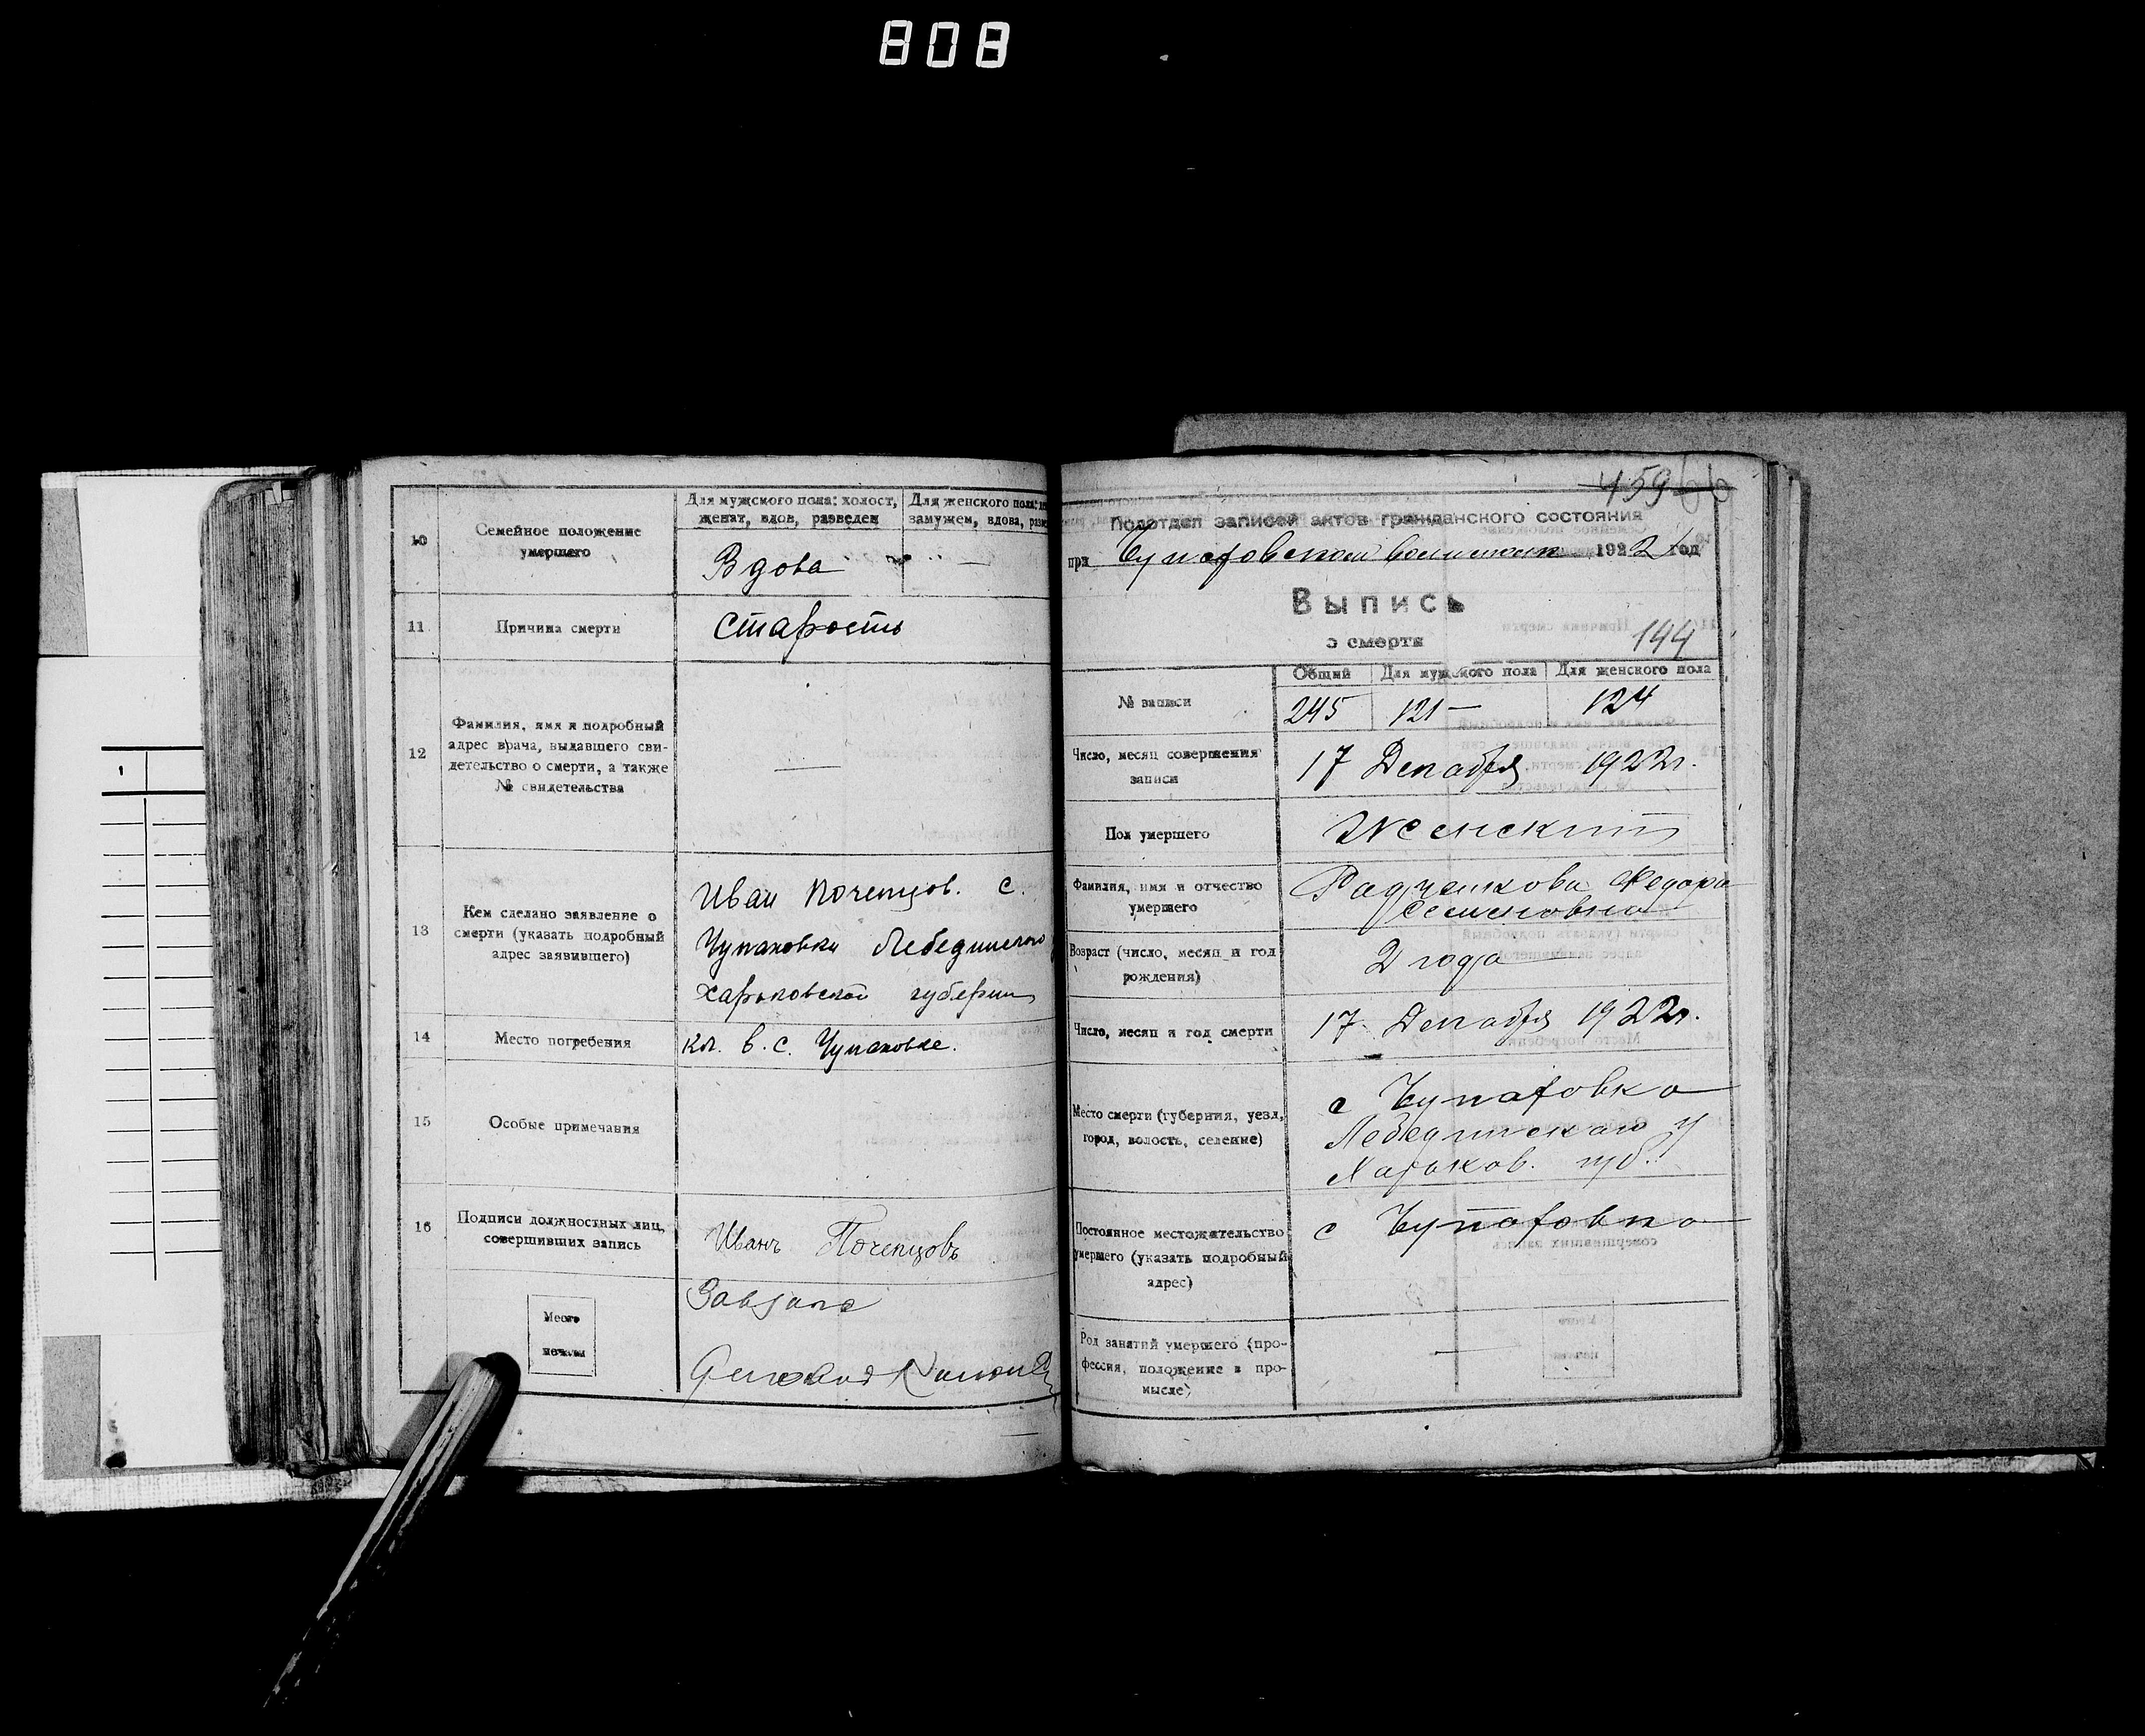 808
10
Семейное положение
умершего
Для мужского пола: холост,
женат, вдов, разведен
Для женского пола:
замужем, вдова,
Вдова
—
11
Причина смерти
старость
12
Фамилия, имя и подробный
адрес врача, выдавшего сви-
детельство о смерти, а также
№ свидетельства
—
13
Кем сделано заявление о
смерти (указать подробный
адрес заявившего)
Иван Почепцов. с.
Чупаховки Лебединского
Харьковской губернии
14
Место погребения
кл. в. с. Чупаховке.
15
Особые примечания
16
Подписи должностных лиц,
совершивших запись
Иванъ Почепцовъ
Место
печати
459
Подотдел записей актов гражданского состояния
при 1922 год
Выпись
о смерти
194
№ записи
Общий
Для мужского пола
Для женского пола
245
121 —
124
Число, месяц совершения
записи
17 Декабря 1922 г.
Пол умершего
Женский
Фамилия, имя и отчество
умершего
Радченкова Федора
Семеновна
Возраст (число, месяц и год
рождения)
2 года
Число, месяц и год смерти
17 Декабря 1922 г.
Место смерти (губерния, уезд,
город, волость, селение)
с Чупаховка
Лебединскаго у
Харьков. губ.
Постоянное местожительство
умершего (указать подробный
адрес)
с Чупаховка
Род занятий умершего (про-
фессия, положение в про-
мысле)
—